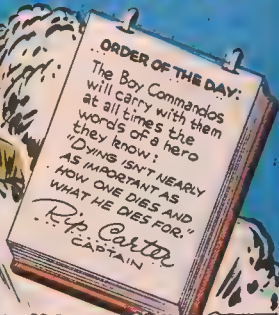 ORDER OF THE DAY:
The Boy Commandos
will carry with them
at all times the
words of a hero
they know:
"DYING ISN'T NEARLY
AS IMPORTANT AS
HOW ONE DIES AND
WHAT HE DIES FOR."
Rip Carter
CAPTAIN